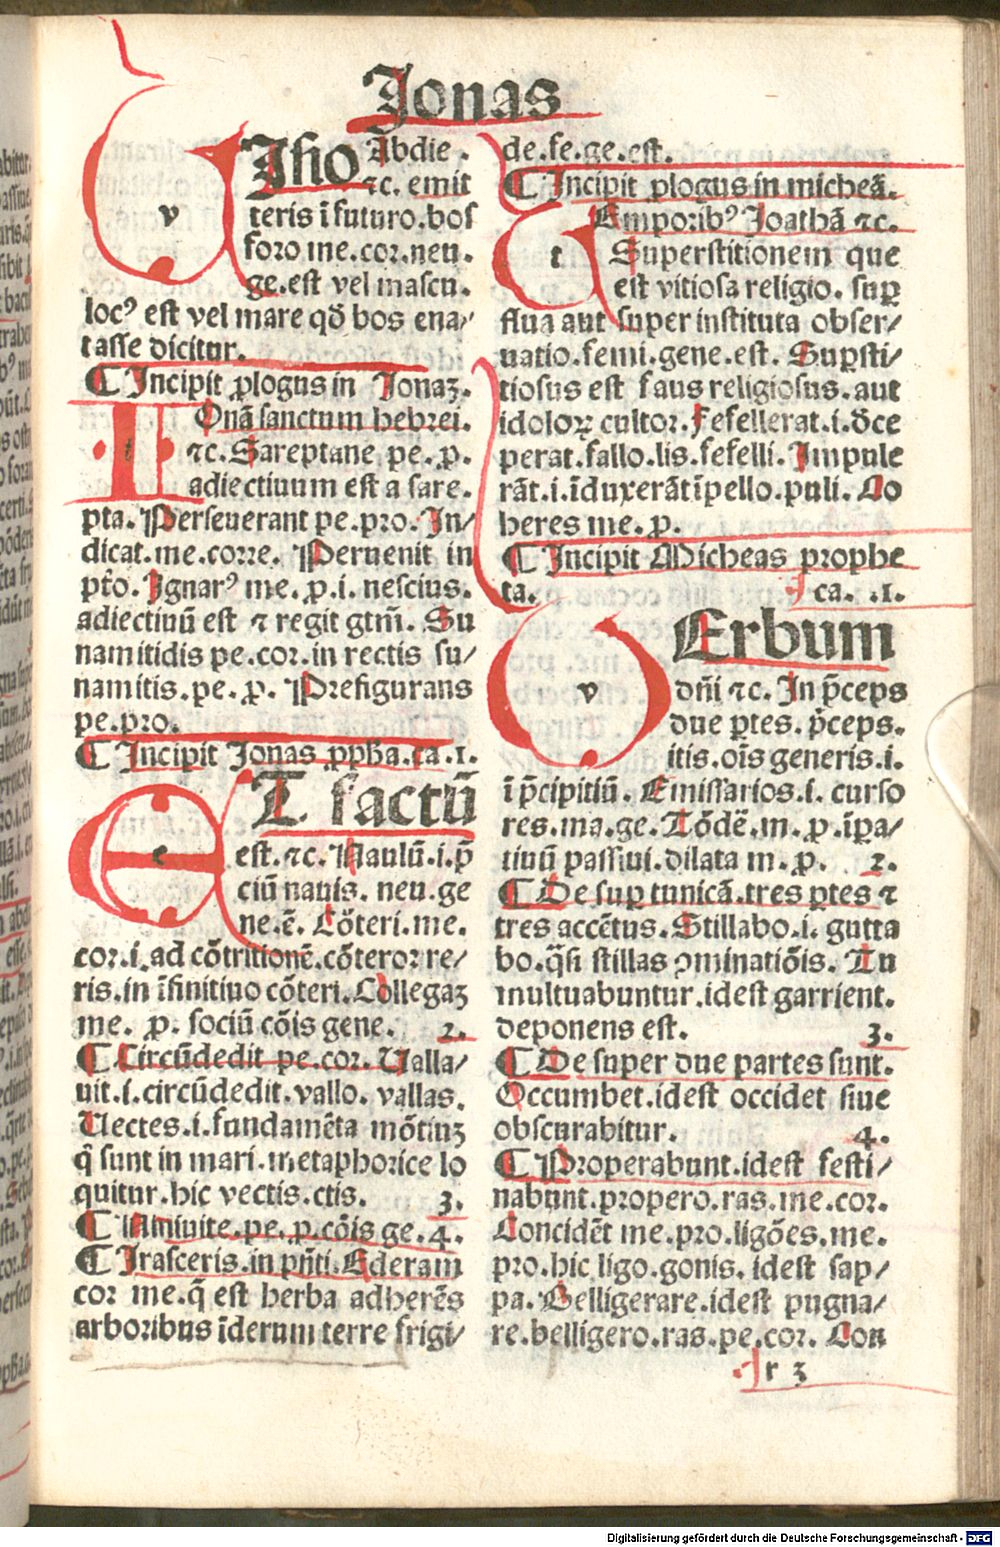 Jonas
Uisio Abdie.
⁊c. emit
teris ī futuro. bos
foro me. cor. neu.
ge. est vel mascu.
locꝰ est vel mare qđ bos ena⸗
tasse dicitur.
¶ Incipit ꝓlogus in Jonaʒ.
I Onā sanctum hebrei.
⁊c. Sareptane pe. ꝓ.
adiectiuum est a sare.
pta. Perseuerant pe. pro. In⸗
dicat. me. corre. Peruenit in
pt̄o. Ignarꝰ me. ꝓ. i. nescius.
adiectiuū est ⁊ regit gtm̄. Su
namitidis pe. cor. in rectis su⸗
namitis. pe. ꝓ. Prefigurans
pe. pro.
¶ Incipit Jonas ꝓpħa. ca. 1.
ET factū
est. ⁊c. Naulū. i. p̄
ciū nauis. neu. ge
ne. ē. Cōteri. me.
cor. i. ad cōtritionē. cōteror re⸗
ris. in īfinitiuo cōteri. Collegaʒ
me. ꝓ. sociū cōis gene. 2.
¶ Circūdedit pe. cor. Ualla⸗
uit. i. circūdedit. vallo. vallas.
Uectes. i. fundamēta mōtiuʒ
q̄ sunt in mari. metaphorice lo
quitur. hic vectis. ctis. 3.
¶ Niniuite. pe. ꝓ. cōis ge. 4.
¶ Irasceris. in pn̄ti. Ederam
cor me. q̄ est herba adherēs
arboribus īderum terre frigi⸗
de. se. ge. est.
¶ Incipit ꝓlogus in micheā.
TEmporibꝰ Joathā ⁊c.
Superstitionem que
est vitiosa religio. suꝑ
flua aut super instituta obser⸗
uatio. femi. gene. est. Suꝑsti⸗
tiosus est faus religiosus. aut
idoloꝝ cultor. Fefellerat. i. dece
perat. fallo. lis. fefelli. Impule
rāt. i. īduxerāt īpello. puli. Co
heres me. ꝓ.
¶ Incipit Micheas prophe
ta. ca. .1.
VErbum
dn̄i ⁊c. In p̄ceps
due ꝑtes. p̄ceps.
itis. oīs generis. i.
ī p̄cipitiū. Emissarios. i. curso
res. ma. ge. Tōdē. m. ꝓ. īpa⸗
tiuū passiui. dilata m. ꝓ. 2.
¶ De suꝑ tunicā. tres ꝑtes ⁊
tres accētus. Stillabo. i. gutta
bo. q̄si stillas ꝯminatiōis. Tu
multuabuntur. idest garrient.
deponens est. 3.
¶ De super due partes sunt.
Occumbet. idest occidet siue
obscurabitur. 4.
¶ Properabunt. idest festi⸗
nabunt. propero. ras. me. cor.
Concidēt me. pro. ligōes. me.
pro. hic ligo. gonis. idest sap⸗
pa. Belligerare. idest pugna⸗
re. belligero. ras. pe. cor. Con
r 3
Digitalisierung gefördert durch die Deutsche Forschungsgemeinschaft - DFG